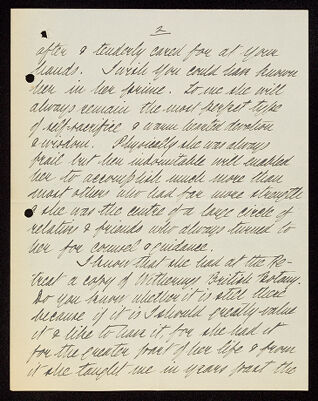 2
after & tenderly cared for at your
hands. I wish you could have known
her in her prime. To me she will
always remain the most perfect type
of self-sacrifice & warm hearted devotion
& wisdom. Physically she was always
frail but her indomitable will enabled
her to accomplish much more than
most others who had far more strength
& she was the centre of a large circle of
relatives & friends who always turned to
her for counsel & guidance.
I know that she had at the Re-
treat a copy of Witherings British Botany.
Do you know whether it is still there
because if it is I should greatly value
it & like to have it, for she had it
for the greater part of her life & from
it she taught me in years past the